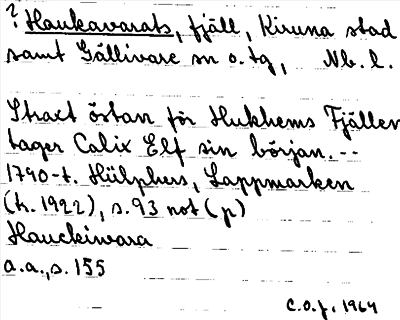 ? Haukavarats, fjäll, Kiruna stad
samt Gällivare sn o. tg, Nb. l.
Straxt östan för Hukhems Fjällen
tager Calix Elf sin början. --
1790-t. Hülphers, Lappmarken
(tr. 1922), s. 93 not (p)
Hauckiwara
a.a., s. 155
C.O.J. 1964